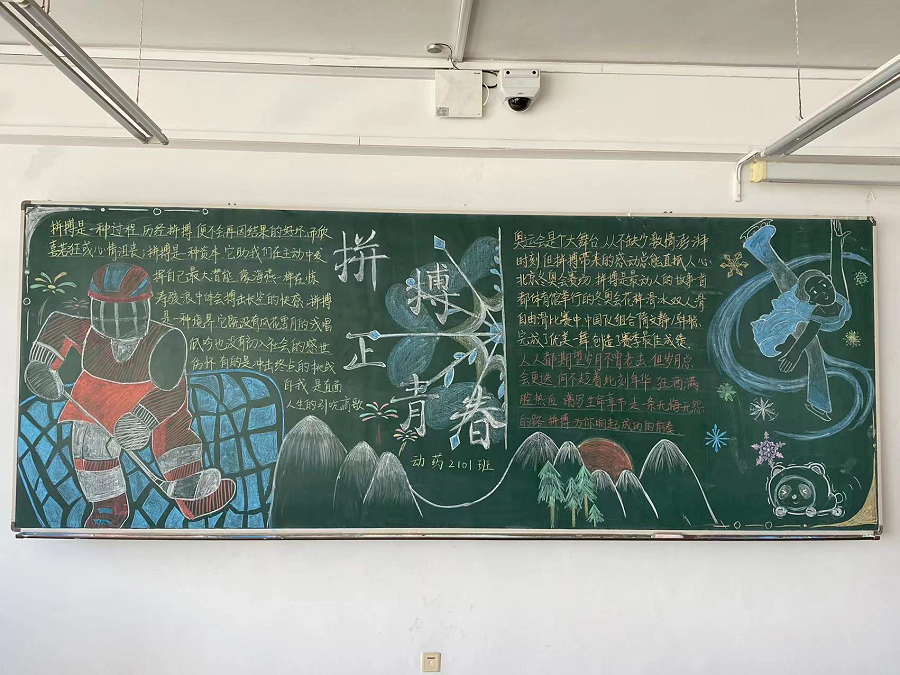 拼搏是一种过程,历经拼搏 便不会再因结果的好坏而欣
喜若狂或心情沮丧;拼搏是一种资本,它助我们在主动中发
挥自己最大潜能,像海燕一样在惊
涛骇浪中体会搏击长空的快感,拼搏
是一种境界,它既没有风花雪月的浅唱
低吟也没有初入社会的感世
伤怀 有的是冲击终点的挑战
自我 是直面
人生的引吭高歌
拼搏
正
青春
动药2101班
奥运会是个大舞台,从不缺少激情澎湃
时刻 但拼搏带来的感动总能直抵人心
北京冬奥会赛场 拼搏是最动人的故事 首
都体育馆举行的冬奥会花样滑冰双人滑
自由滑比赛中 中国队组合隋文静/韩聪
完成了优美一舞 创造了赛季最佳成绩
人人都期望岁月不曾老去 但岁月总
会更迭 何不趁着此刻年华 狂洒满
腔热血
的路 拼搏 为你响起成功的前奏